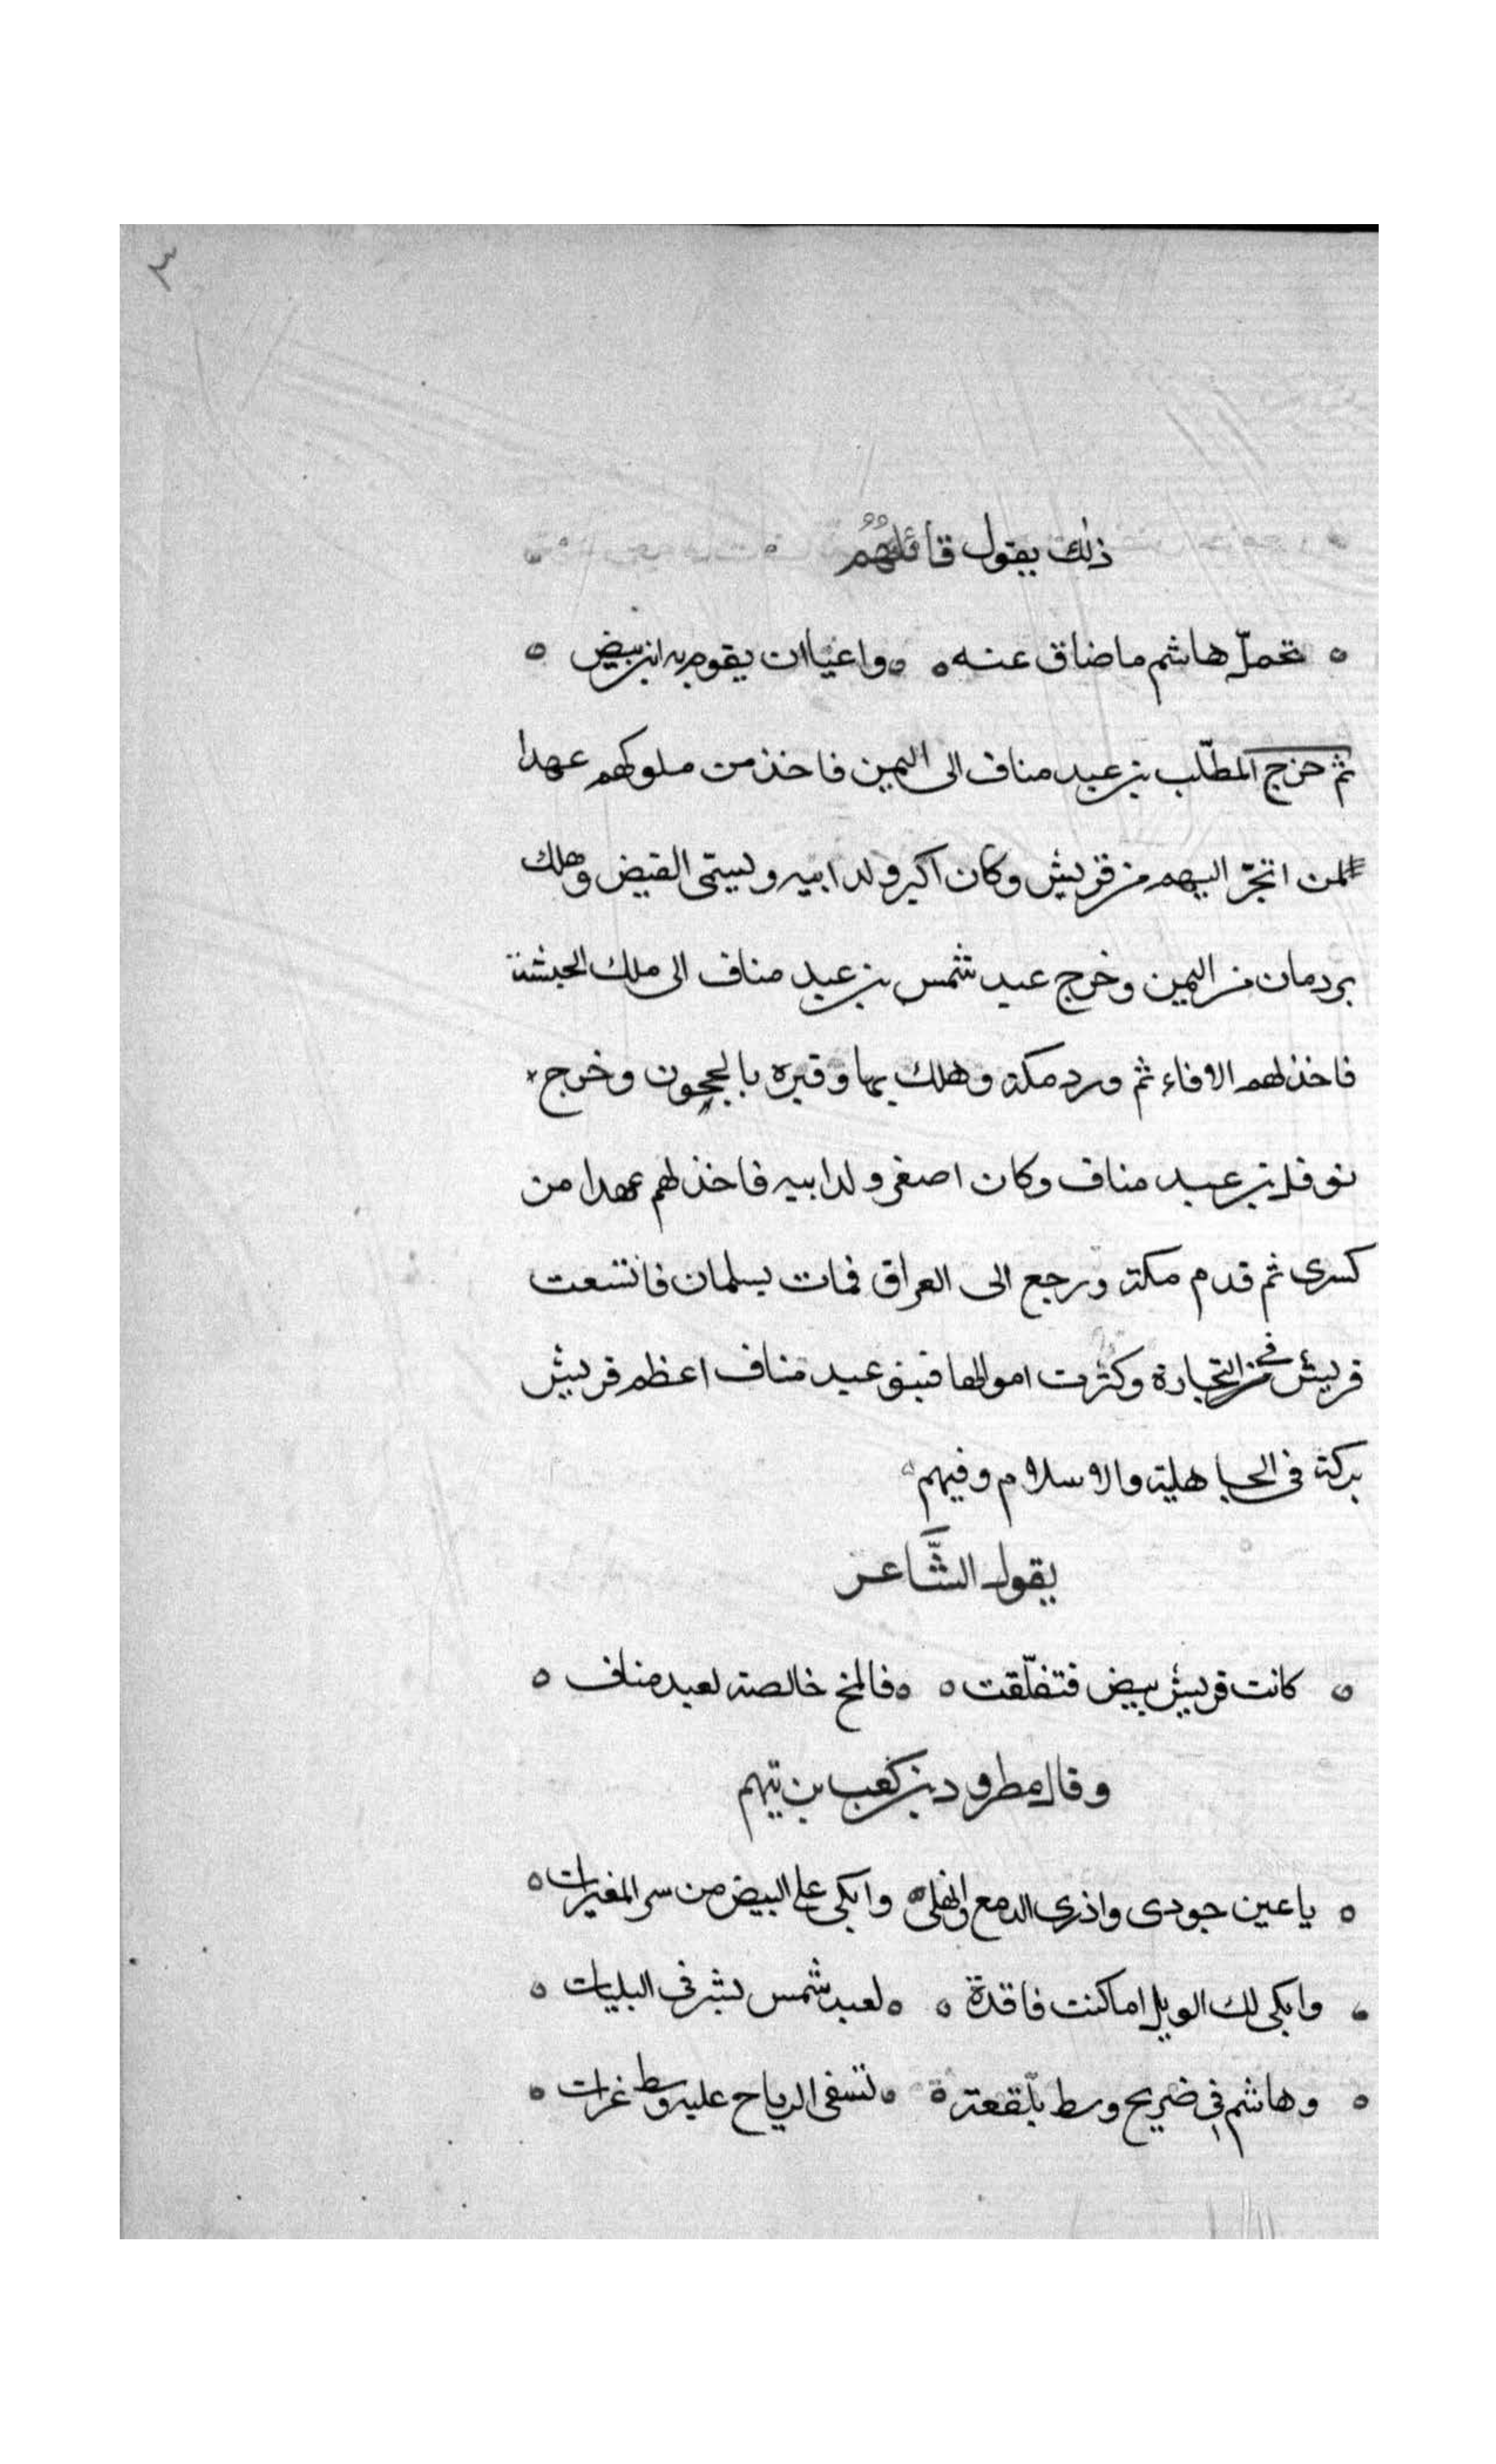 ٣
ذلك يقول قائلهم
تحمل هاشم ما ضاق عنه واعيا ان يقوم به ابن بيض
ثم خرج المطّلب بن عبد مناف الى اليمن فاخذ من ملوكهم عهدا
لمن اتجر اليهم من قريش وكان اكبر ولد ابيه ويسمّى الفيض وهلك
بردمان من اليمن وخرج عبد شمس بن عبد مناف الى ملك الحبشة
فاخذ لهم الافاء ثم ورد مكة وهلك بها وقبره بالحجون وخرج
نوفل بن عبد مناف وكان اصغر ولد ابيه فاخذ لهم عهدا من
كسرى ثم قدم مكة ورجع الى العراق فمات بسلمان فاتسعت
قريش في التجارة وكثرت اموالها فبنو عبد مناف اعظم قريش
بركة في الجاهلية والاسلام وفيهم
يقول الشَّاعر
كانت قريش بيض فتفلّقت فالمخ خالصة لعبد مناف
وقال مطرود بن كعب بن تيم
يا عين جودى واذرى الدمع وانهلى وابكى على البيض من سر المغيرات
وابكى لك الويل اما كنت فاقدة لعبد شمس بشرفى البليات
وهاشم في ضريح وسط بلقعة تسفى الرياح عليه وسط غرات